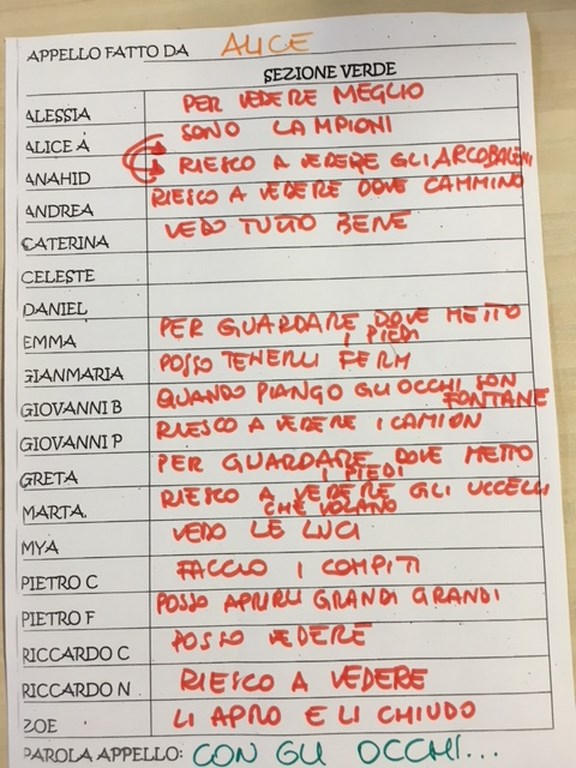 APPELLO FATTO DA ALICE
SEZIONE VERDE
ALESSIA PER VEDERE MEGLIO
ALICE A SONO LAMPIONI
ANAHID RIESCO A VEDERE GLI ARCOBALENI
ANDREA RIESCO A VEDERE DOVE CAMMINO
CATERINA VEDO TUTTO BENE
CELESTE
DANIEL
EMMA PER GUARDARE DOVE METTO
I PIEDI
GIANMARIA POSSO TENERLI FERMI
GIOVANNI B QUANDO PIANGO GLI OCCHI SON
FONTANE
GIOVANNI P RIESCO A VEDERE I CAMION
GRETA PER GUARDARE DOVE METTO
I PIEDI
MARTA. RIESCO A VEDERE GLI UCCELLI
CHE VOLANO
MYA VEDO LE LUCI
PIETRO C FACCIO I COMPITI
PIETRO F POSSO APRIRLI GRANDI GRANDI
RICCARDO C POSSO VEDERE
RICCARDO N RIESCO A VEDERE
ZOE LI APRO E LI CHIUDO
PAROLA APPELLO: CON GLI OCCHI...